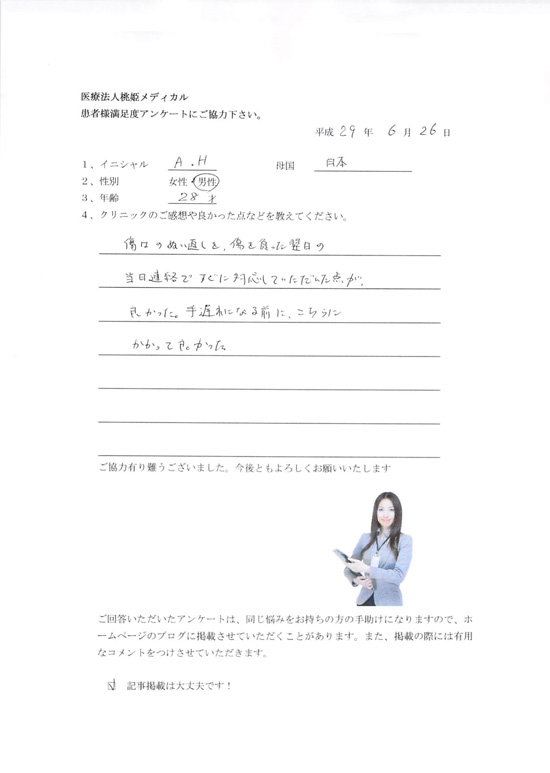 医療法人桃姫メディカル
患者様満足度アンケートにご協力下さい。
平成 29 年 6 月 26 日
1、イニシャル A.H 母国 日本
2、性別 女性・男性
3、年齢 28才
4、クリニックのご感想や良かった点などを教えてください。
傷口のぬい直しを、傷を負った翌日の
当日連絡ですぐに対応していただいた点が、
良かった。手遅れになる前に、こちらに
かかって良かった
ご協力有り難うございました。今後ともよろしくお願いいたします
ご回答いただいたアンケートは、同じ悩みをお持ちの方の手助けになりますので、ホ
ームページのブログに掲載させていただくことがあります。また、掲載の際には有用
なコメントをつけさせていただきます。
記事掲載は大丈夫です！